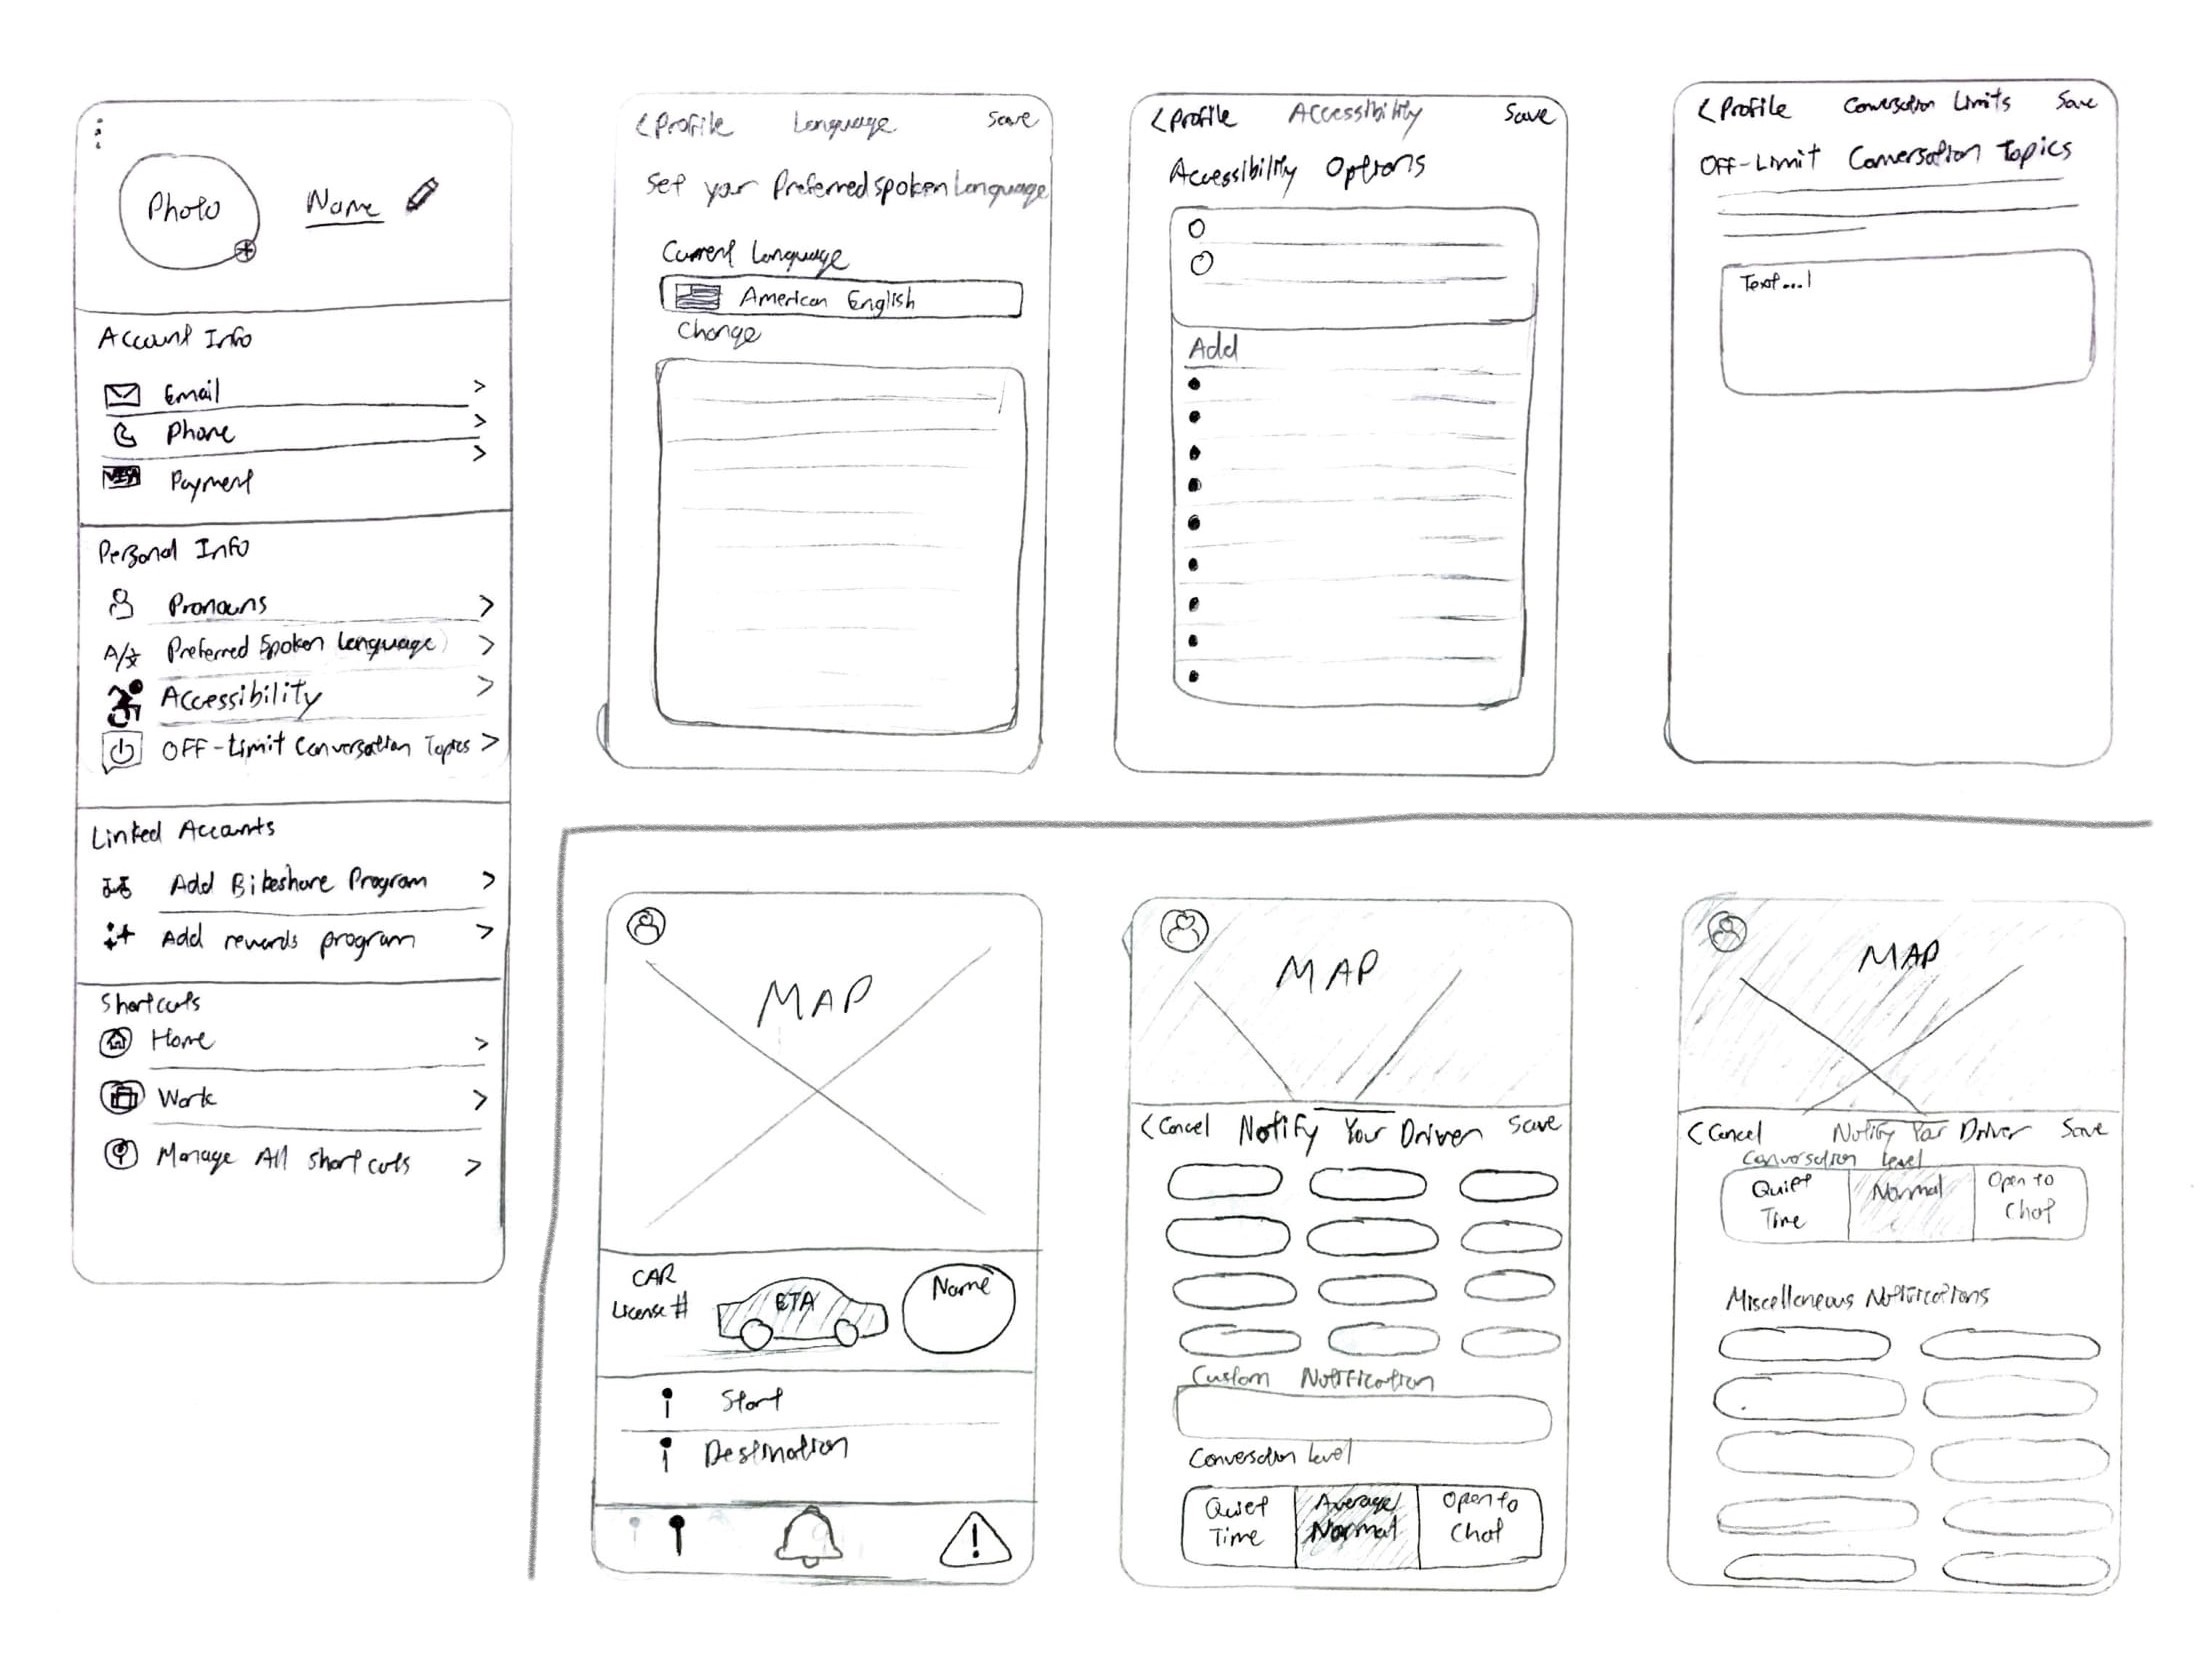 Photo
Name
Account Info
Email
Phone
VISA
Payment
Personal Info
Pronouns
A/文
Preferred Spoken Language
Accessibility
OFF-Limit Conversation Topics
Linked Accounts
Add Bikeshare Program
Add rewards program
Shortcuts
Home
Work
Manage All shortcuts
< Profile Language Save
Set your Preferred spoken Language
Current Language
American English
Change
< Profile Accessibility Save
Accessibility Options
Add
< Profile Conversation Limits Save
OFF-Limit Conversation Topics
Text...|
MAP
CAR
License #
ETA
Name
Start
Destination
!
MAP
< Cancel Notify Your Driver Save
Custom Notification
Conversation Level
Quiet Time
Average/ Normal
Open to Chat
MAP
< Cancel Notify Your Driver Save
Conversation Level
Quiet Time
Normal
Open to Chat
Miscellaneous Notifications